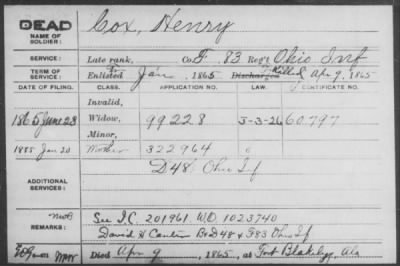 DEAD
NAME OF SOLDIER:
Cox, Henry
SERVICE:
Late rank, Co. F. 83 Reg't Ohio Inf
TERM OF SERVICE:
Enlisted Jan, 1865 Discharged Killed Apr 9, 1865
DATE OF FILING. CLASS. APPLICATION NO. LAW. CERTIFICATE NO.
Invalid,
1865 June 28 Widow, 99228 3-3-26 60.797
Minor,
1885 Jan 20 Mother 322964
ADDITIONAL SERVICES:
D 48 Ohio Inf
REMARKS:
See I.C. 201961. W.O. 1023740
David H B D 48 & F 83 Ohio Inf
Died Apr 9, 1865, at Fort Blakely, Ala